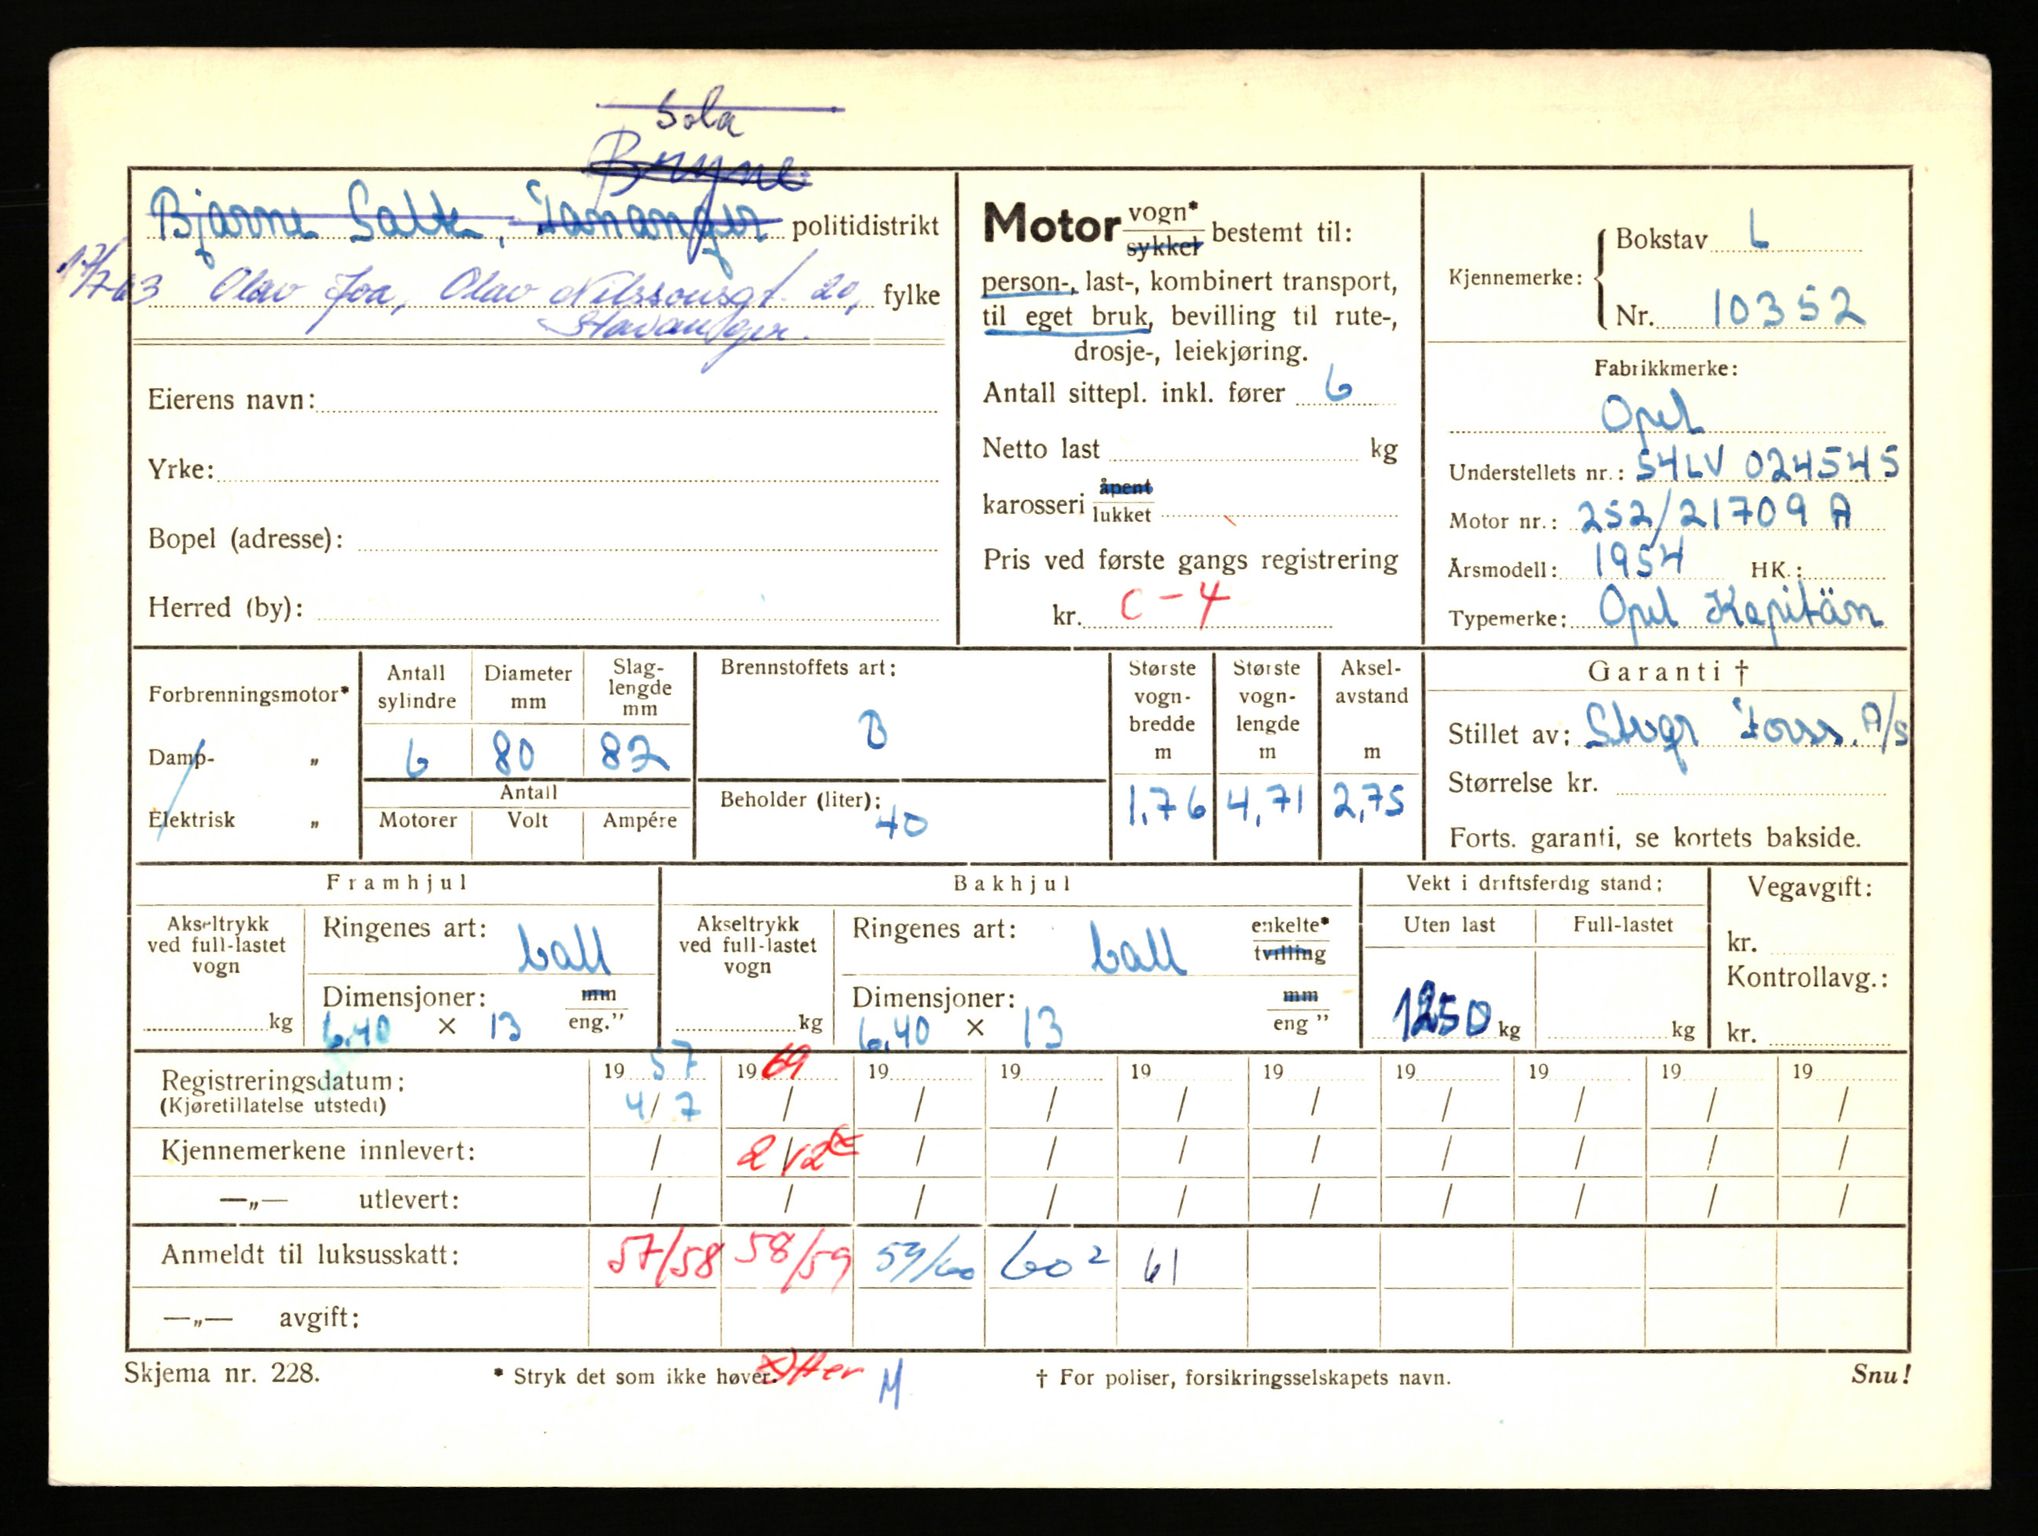 Sola
Bryne
Bjarne Salte, Tananger politidistrikt
17/7 63 Olav Joa, Olav Nilssonsgt. 20, fylke
Stavanger.
Eierens navn:
Yrke:
Bopel (adresse):
Herred (by):
Motor vogn*
sykkel bestemt til:
person-, last-, kombinert transport,
til eget bruk, bevilling til rute-,
drosje-, leiekjøring.
Antall sittepl. inkl. fører 6
Netto last kg
karosseri åpent
lukket
Pris ved første gangs registrering
kr. C-4
Kjennemerke: Bokstav L
Nr. 10352
Fabrikkmerke:
Opel
Understellets nr.: 54LV 024545
Motor nr.: 252/21709 A
Årsmodell: 1954 HK.:
Typemerke: Opel Kapitän
Forbrenningsmotor*
Damp- „
Elektrisk „
Antall sylindre 6
Diameter mm 80
Slag-lengde mm 82
Antall
Motorer Volt Ampére
Brennstoffets art:
B
Beholder (liter): 40
Største vogn-bredde m 1,76
Største vogn-lengde m 4,71
Aksel-avstand m 2,75
Garanti †
Stillet av: Stvgr Forss. A/S
Størrelse kr.
Forts. garanti, se kortets bakside.
Framhjul
Akseltrykk ved full-lastet vogn
kg
Ringenes art: ball
Dimensjoner: mm
6.40 × 13 eng.”
Bakhjul
Akseltrykk ved full-lastet vogn
kg
Ringenes art: ball enkelte*
tvilling
Dimensjoner: mm
6.40 × 13 eng ”
Vekt i driftsferdig stand:
Uten last Full-lastet
1250 kg kg
Vegavgift:
kr.
Kontrollavg.:
kr.
Registreringsdatum: 19 57 19 69 19 19 19 19 19 19 19 19
(Kjøretillatelse utstedt) 4/7 / / / / / / / / /
Kjennemerkene innlevert: / 2/12 x / / / / / / / /
—„— utlevert: / / / / / / / / / /
Anmeldt til luksusskatt: 57/58 58/59 59/60 60² 61
—„— avgift:
Skjema nr. 228. * Stryk det som ikke høver. x) Etter M † For poliser, forsikringsselskapets navn. Snu!